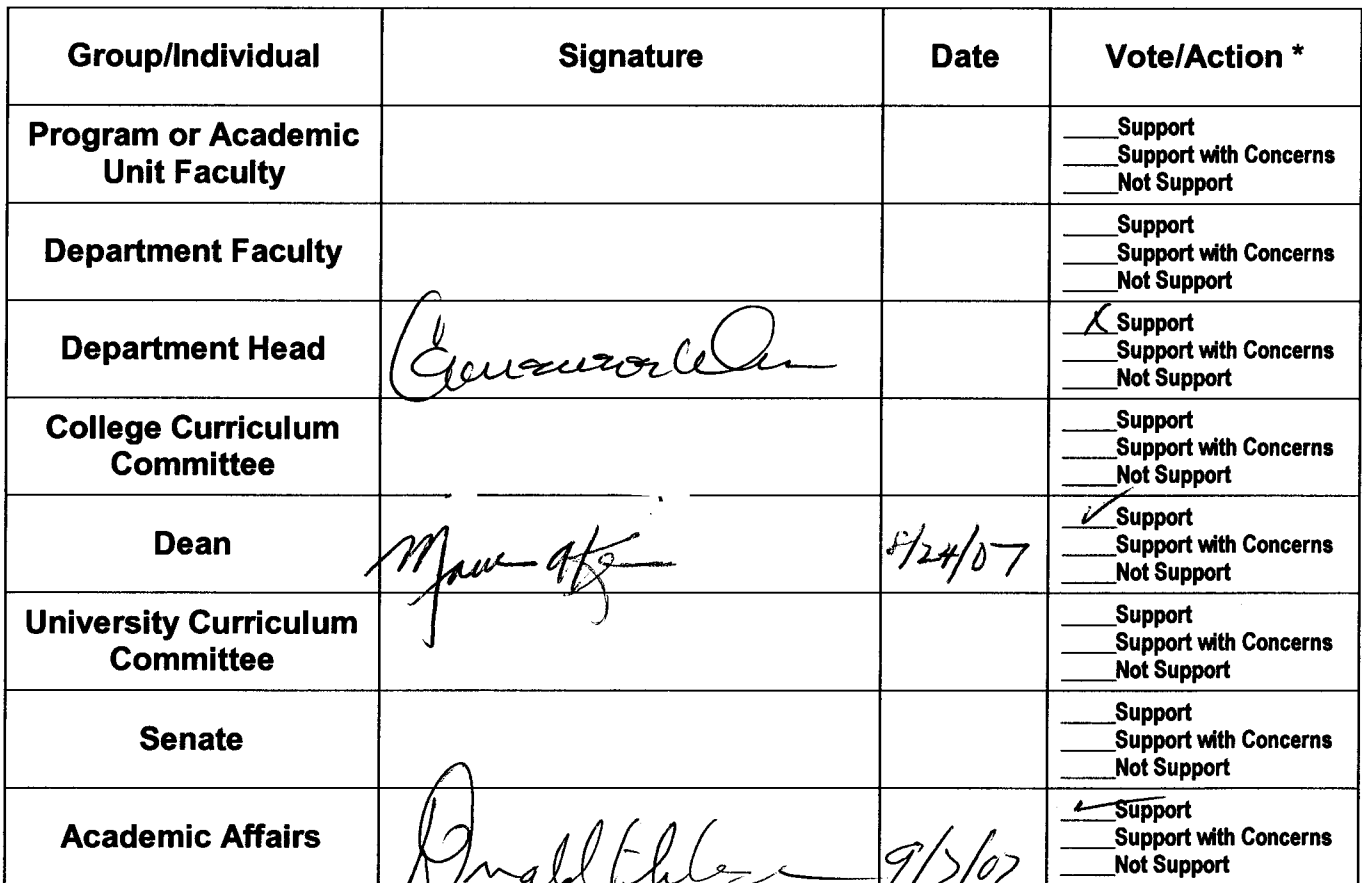 Group/Individual Signature Date Vote/Action *
Program or Academic
Unit Faculty
____Support
____Support with Concerns
____Not Support
Department Faculty
____Support
____Support with Concerns
____Not Support
Department Head
X Support
____Support with Concerns
____Not Support
College Curriculum
Committee
____Support
____Support with Concerns
____Not Support
Dean
8/24/07
✓ Support
____Support with Concerns
____Not Support
University Curriculum
Committee
____Support
____Support with Concerns
____Not Support
Senate
____Support
____Support with Concerns
____Not Support
Academic Affairs
Donald
✓ Support
____Support with Concerns
____Not Support